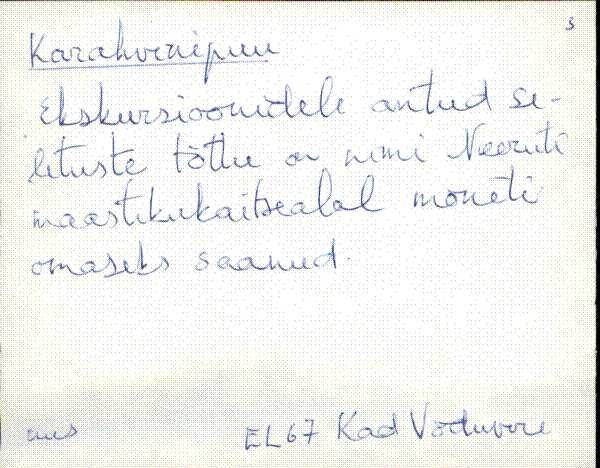 s
Karahvinipuu
Ekskursioonidele antud se-
letuste tõttu on nimi Neeruti
maastikukaitsealal mõneti
omaseks saanud.
EL67 Kad Võduvere